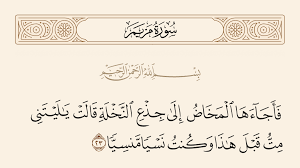 سُورَةُ مَرْيَمَ
بِسْمِ اللَّهِ الرَّحْمَٰنِ الرَّحِيمِ
فَأَجَآءَهَا ٱلْمَخَاضُ إِلَىٰ جِذْعِ ٱلنَّخْلَةِ قَالَتْ يَٰلَيْتَنِى
مِتُّ قَبْلَ هَٰذَا وَكُنتُ نَسْيًا مَّنسِيًّا ٢٣